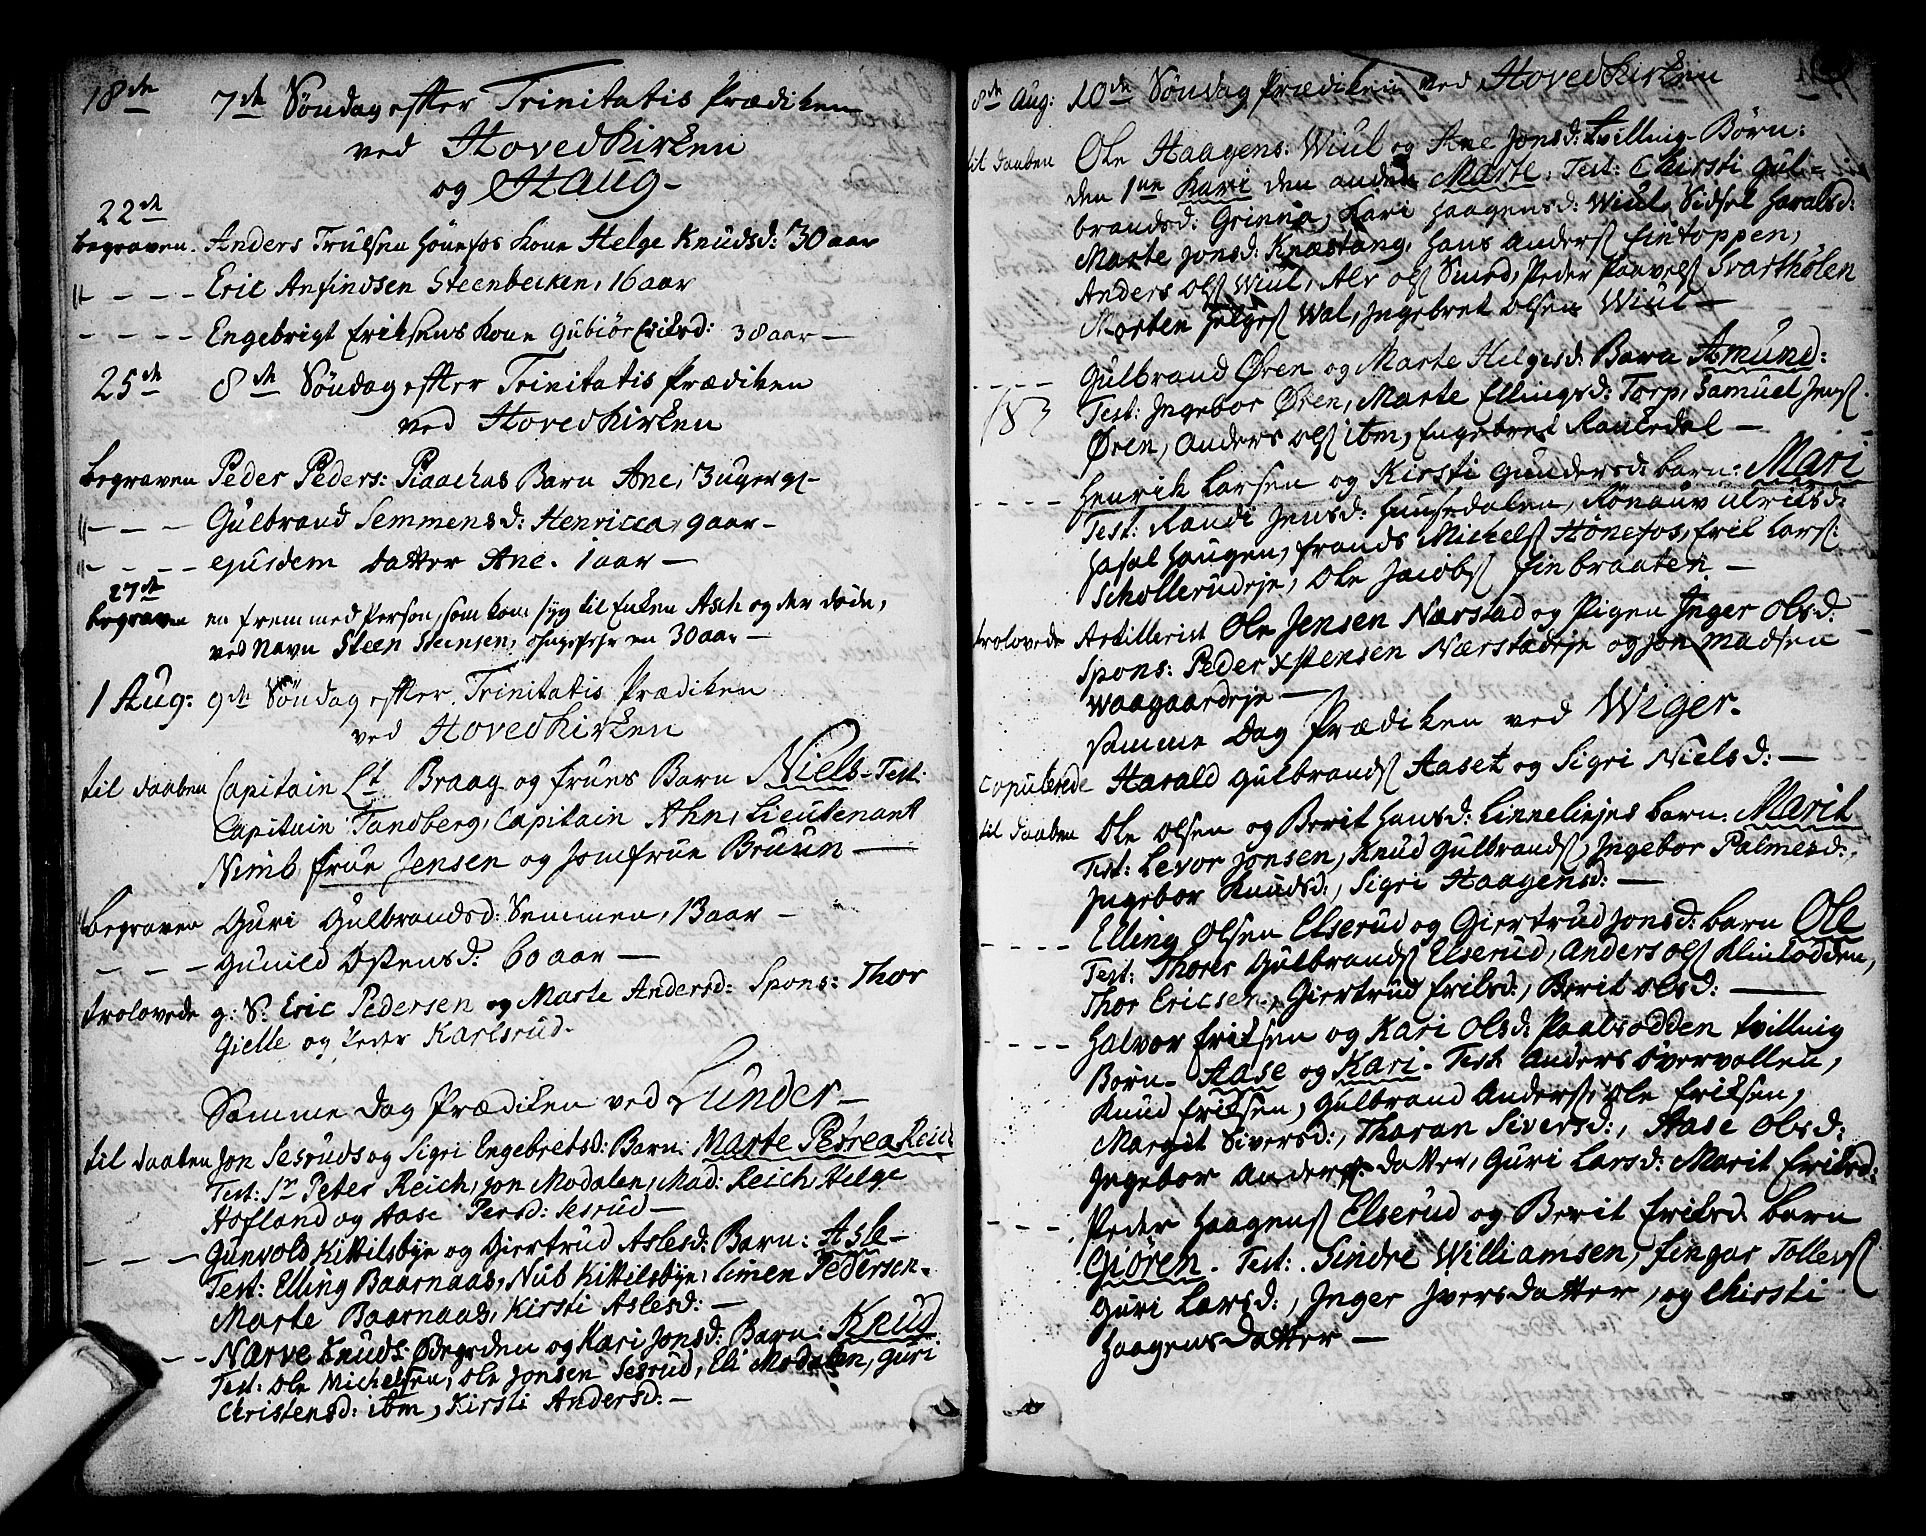 18de 7de Søndag efter Trinitatis Prædiken
ved Hovedkirken
og Haug -
22de
begraven. Anders Trulsen Hønefos Kone Helge Knudsd: 30 aar
" - - - - Eric Anfindsen Steenbecken, 16 aar
- - - - Engebrigt Eriksens Kone Gubiør Eriksd: 38 aar -
25de 8de Søndag efter Trinitatis Prædiken
ved Hovedkirken
begraven Peder Peders: Barn Ane, 3 uger
" - - - Gulbrand Semmens d: Henricca, 9 aar -
" - - - - ejusdem Datter Ane. 1 aar -
27de
begraven en fremmed Person, som kom syg til Enken Asch og der døde,
ved Navn Steen Steensen, en 30 aar -
1 Aug: 9de Søndag efter Trinitatis Prædiken
ved Hovedkirken
til daaben Capitain Lt. Braag og Frues Barn Niels - Test:
Capitain Tandberg, Capitain Ahn, Lieutenant
Nimb frue Jensen og Jomfrue Bruun -
begraven Guri Gulbrandsd: Semmen, 13 aar -
- - - Gunild Østensd: 60 aar -
trolovede g: S: Eric Pedersen og Marte Andersd: Spons: Thor
Gielle og Peder Karlsrud -
Samme Dag Prædiken ved Lunder -
til daaben Jon Sesruds og Sigri Engebretsd: Barn: Marte Petrea Reich
Test: Sr Peter Reich, Jon Modalen, Mad: Reich, Helge
Hofland og Aase Persd: Sesrud -
- - - Gunvold Kittilsbye og Giertrud Aslesd: Barn: Asle -
Test: Elling Baarnaas, Nub Kittilsbye, Simen Pedersen -
Marte Baarnaas, Kirsti Aslesd: -
- - Narve Knuds: Øegrden og Kari Jonsd: Barn: Knud
Test: Ole Michelsen, Ole Jonsen Sesrud, Eli Modalen, Guri
Christensd: ibm, Kirsti Andersd: -
8de Aug: 10de Søndag Prædiken ved Hovedkirken
til daaben Ole Haagens: Wiul og Ane Jonsd: tvilling Børn:
den 1ne Kari den anden Marte, Test: Chirsti Gul-
brandsd: Grinna, Kari Haagensd: Wiul, Sidsel Haralsd:
Marte Jonsd: Knæstang, Hans Anders: Fintoppen,
Anders Ols: Wiul, Alv Ols: Smed, Peder Paavels: Svarthølen
Morten Helges: Wal, Ingebret Olsen Wiul -
- - - - Gulbrand Øren og Marte Helgesd: Barn Amund:
Test: Ingebor Øren, Marte Ellingsd: Torp, Samuel Jens:
Øren, Anders Ols: ibm, Engebret Raaledal -
- - - - Henrik Larsen og Kirsti Gundersd: barn: Mari
Test: Randi Jensd: Hunsedalen, Rønauv Ulriksd:
Hasal Haugen, Frands Michels: Hønefos, Erik Lars:
Schollerudeje, Ole Jacobs: Finbraaten -
trolovede Artillerist Ole Jensen Nærstad og Pigen Inger Olsd:
Spons: Peder Xstensen Nærstadeje og Jon Madsen
Waagaardeje -
Samme Dag Prædiken ved Wiger -
Copulerede Harald Gulbrands: Aaset og Sigri Nielsd: -
til daaben Ole Olsen og Berit Hansd: Linneliejes barn: Marit
Test: Levor Jonsen, Knud Gulbrands:, Ingebor Palmesd:,
Ingebor Knudsd:, Sigri Haagensd: -
- - - - Elling Olsen Elserud og Giertrud Jonsd: barn Ole
Test: Thores Gulbrands: Elserud, Anders Ols: Klinlodden,
Thor Ericsen, Giertrud Eriksd:, Berit Olsd: -
- - - - Halvor Eriksen og Kari Olsd: Paalsodden tvilling
Børn - Aase og Kari - Test: Anders Overvollen,
Knud Eriksen, Gulbrand Anders:, Ole Eriksen,
Margit Siversd:, Thoran Siversd:, Aase Olsd:
Ingebor Anders datter, Guri Larsd: Marit Eriksd:
- - - Peder Haagens: Elserud og Berit Eriksd: barn
Giøren - Test: Sindre Williamsen, Fingar Tollevs:
Guri Larsd:, Inger Iversdatter, og Chirsti
Haagensdatter -